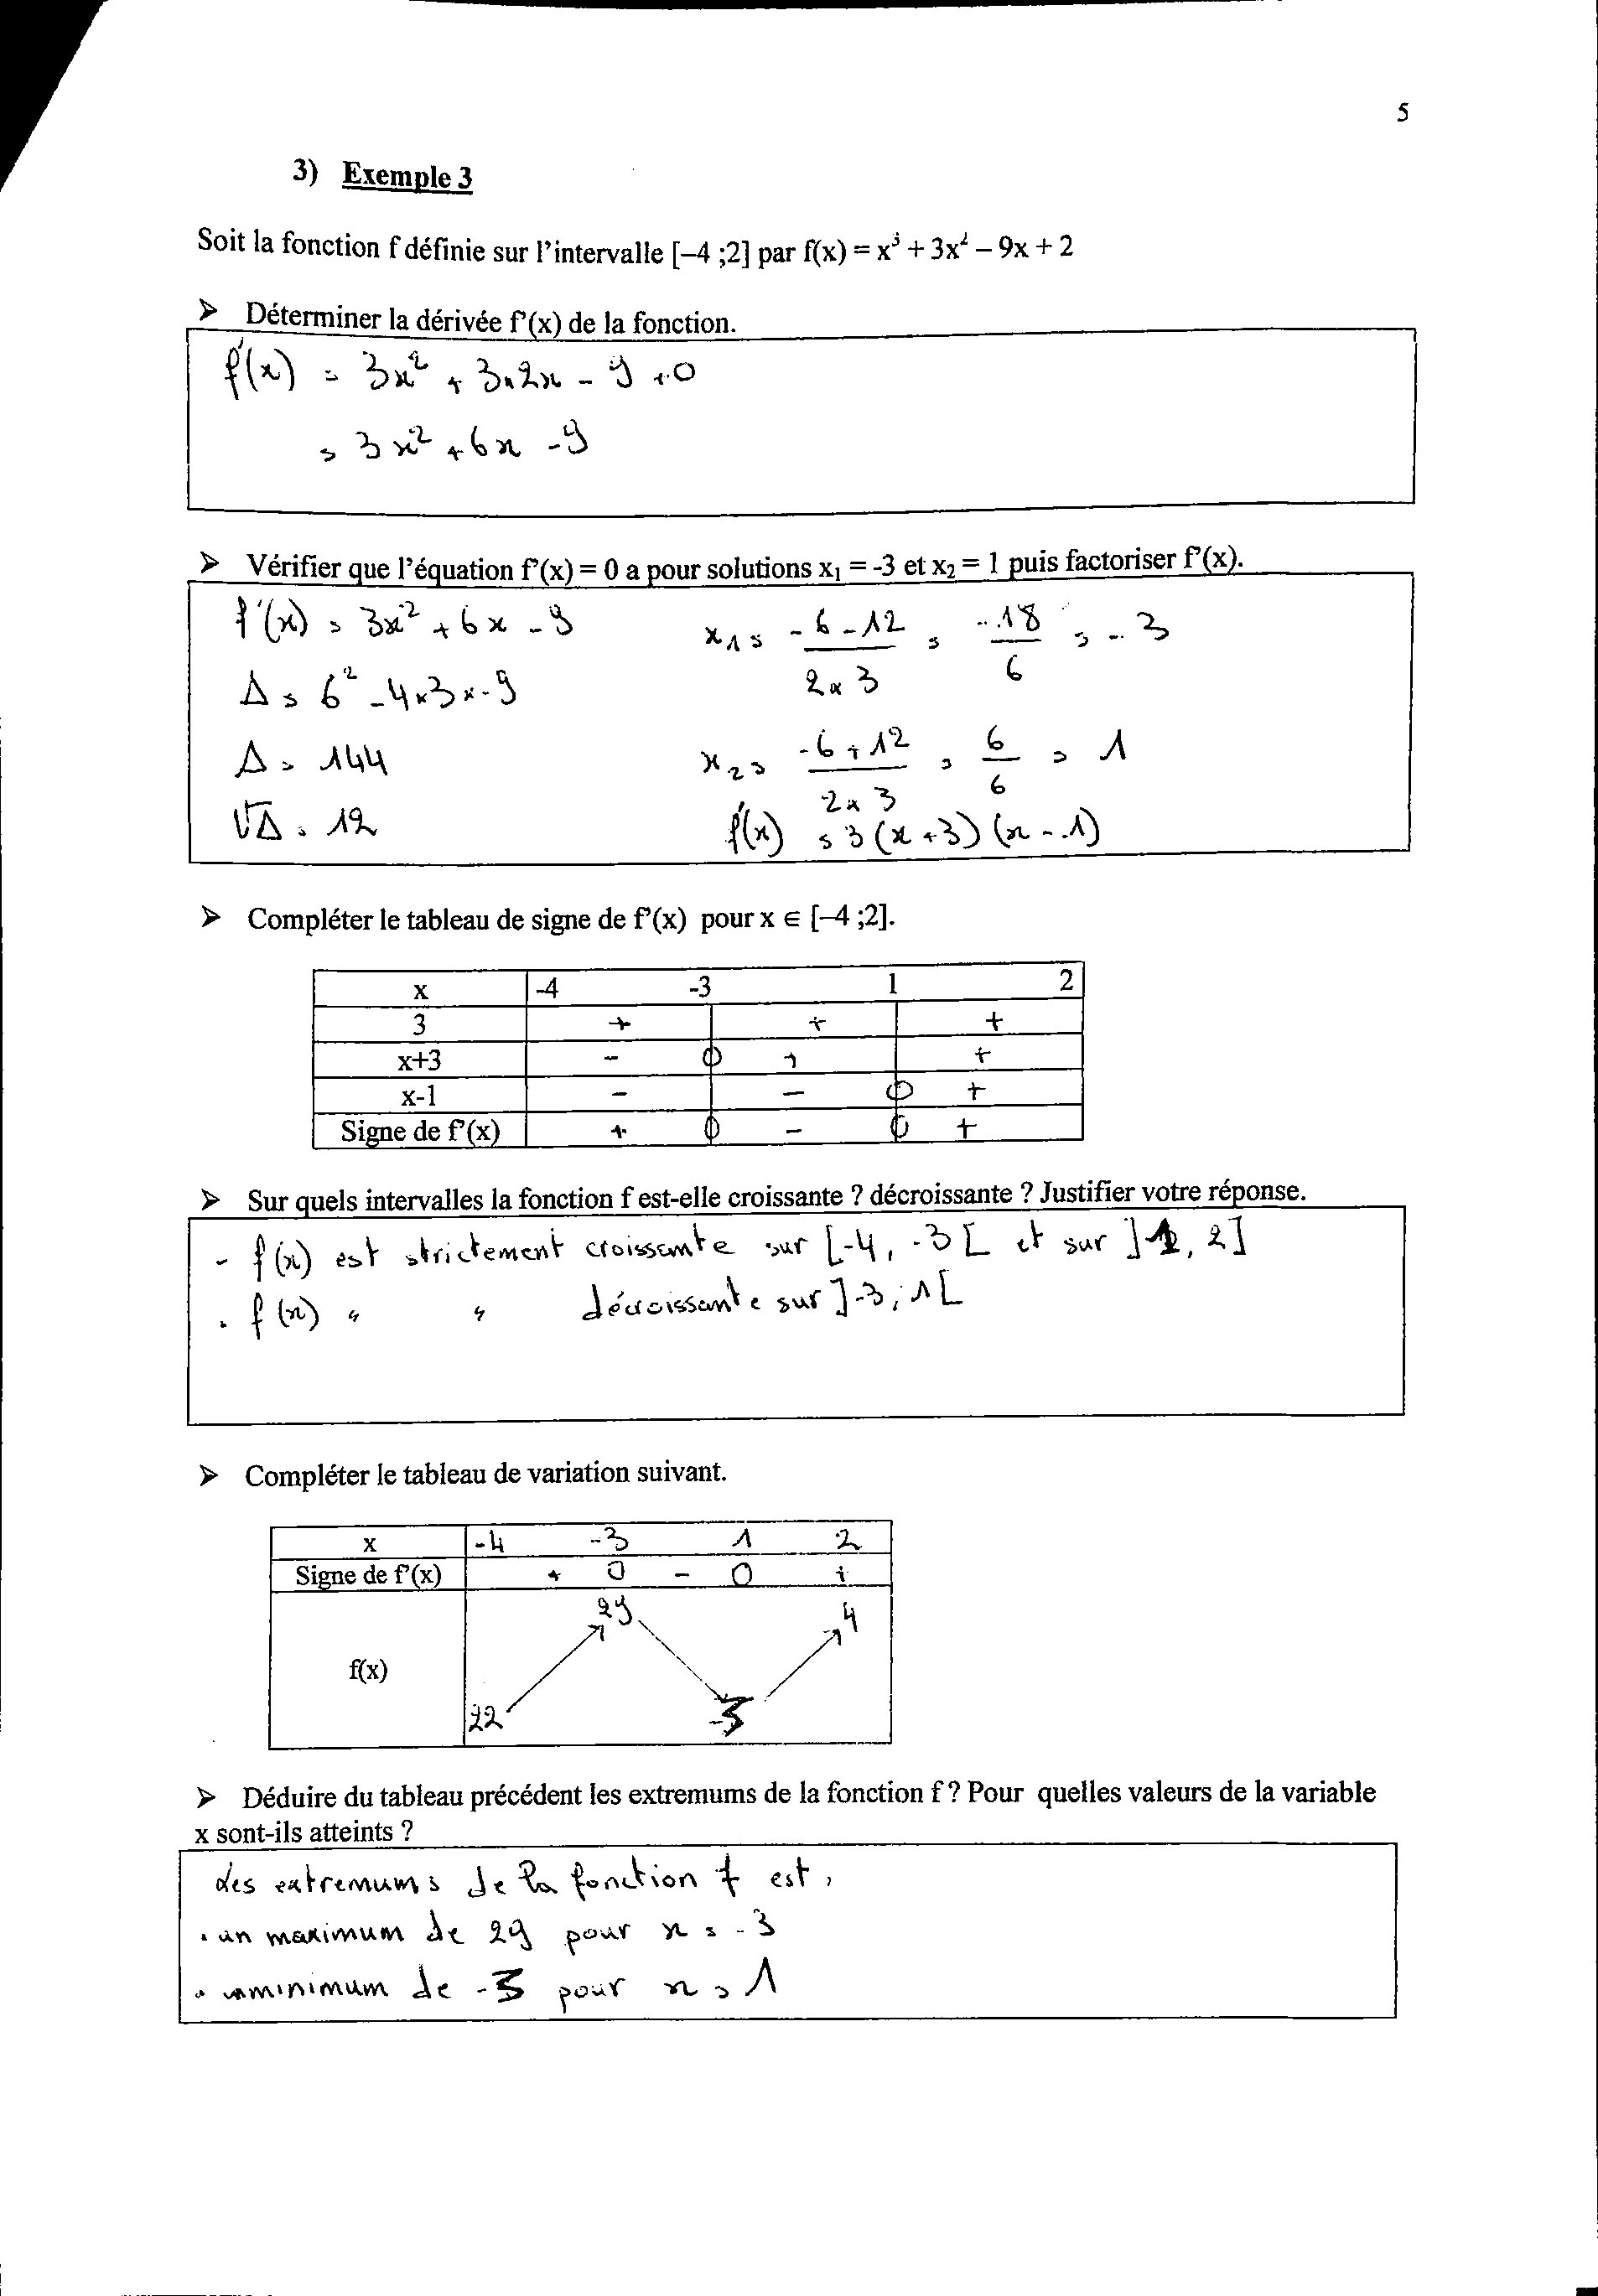 5
3) Exemple 3
Soit la fonction f définie sur l'intervalle [–4 ;2] par f(x) = x³ + 3x² – 9x + 2
➤ Déterminer la dérivée f'(x) de la fonction.
f'(x) = 3x² + 3×2x - 9 + 0
= 3x² + 6x - 9
➤ Vérifier que l'équation f'(x) = 0 a pour solutions x₁ = -3 et x₂ = 1 puis factoriser f'(x).
f'(x) = 3x² + 6x - 9
Δ = 6² - 4×3×-9
Δ = 144
√Δ = 12
x₁ = (-6-12)/(2×3) = -18/6 = -3
x₂ = (-6+12)/(2×3) = 6/6 = 1
f'(x) = 3(x+3)(x-1)
➤ Compléter le tableau de signe de f'(x) pour x ∈ [–4 ;2].
x -4 -3 1 2
3 + + +
x+3 - 0 + +
x-1 - - 0 +
Signe de f'(x) + 0 - 0 +
➤ Sur quels intervalles la fonction f est-elle croissante ? décroissante ? Justifier votre réponse.
- f(x) est strictement croissante sur [-4, -3[ et sur ]1, 2]
. f(x) " " décroissante sur ]-3; 1[
➤ Compléter le tableau de variation suivant.
x -4 -3 1 2
Signe de f'(x) + 0 - 0 +
29 4
f(x)
22 -3
➤ Déduire du tableau précédent les extremums de la fonction f ? Pour quelles valeurs de la variable
x sont-ils atteints ?
Les extremums de la fonction f est,
. un maximum de 29 pour x = -3
. un minimum de -3 pour x = 1